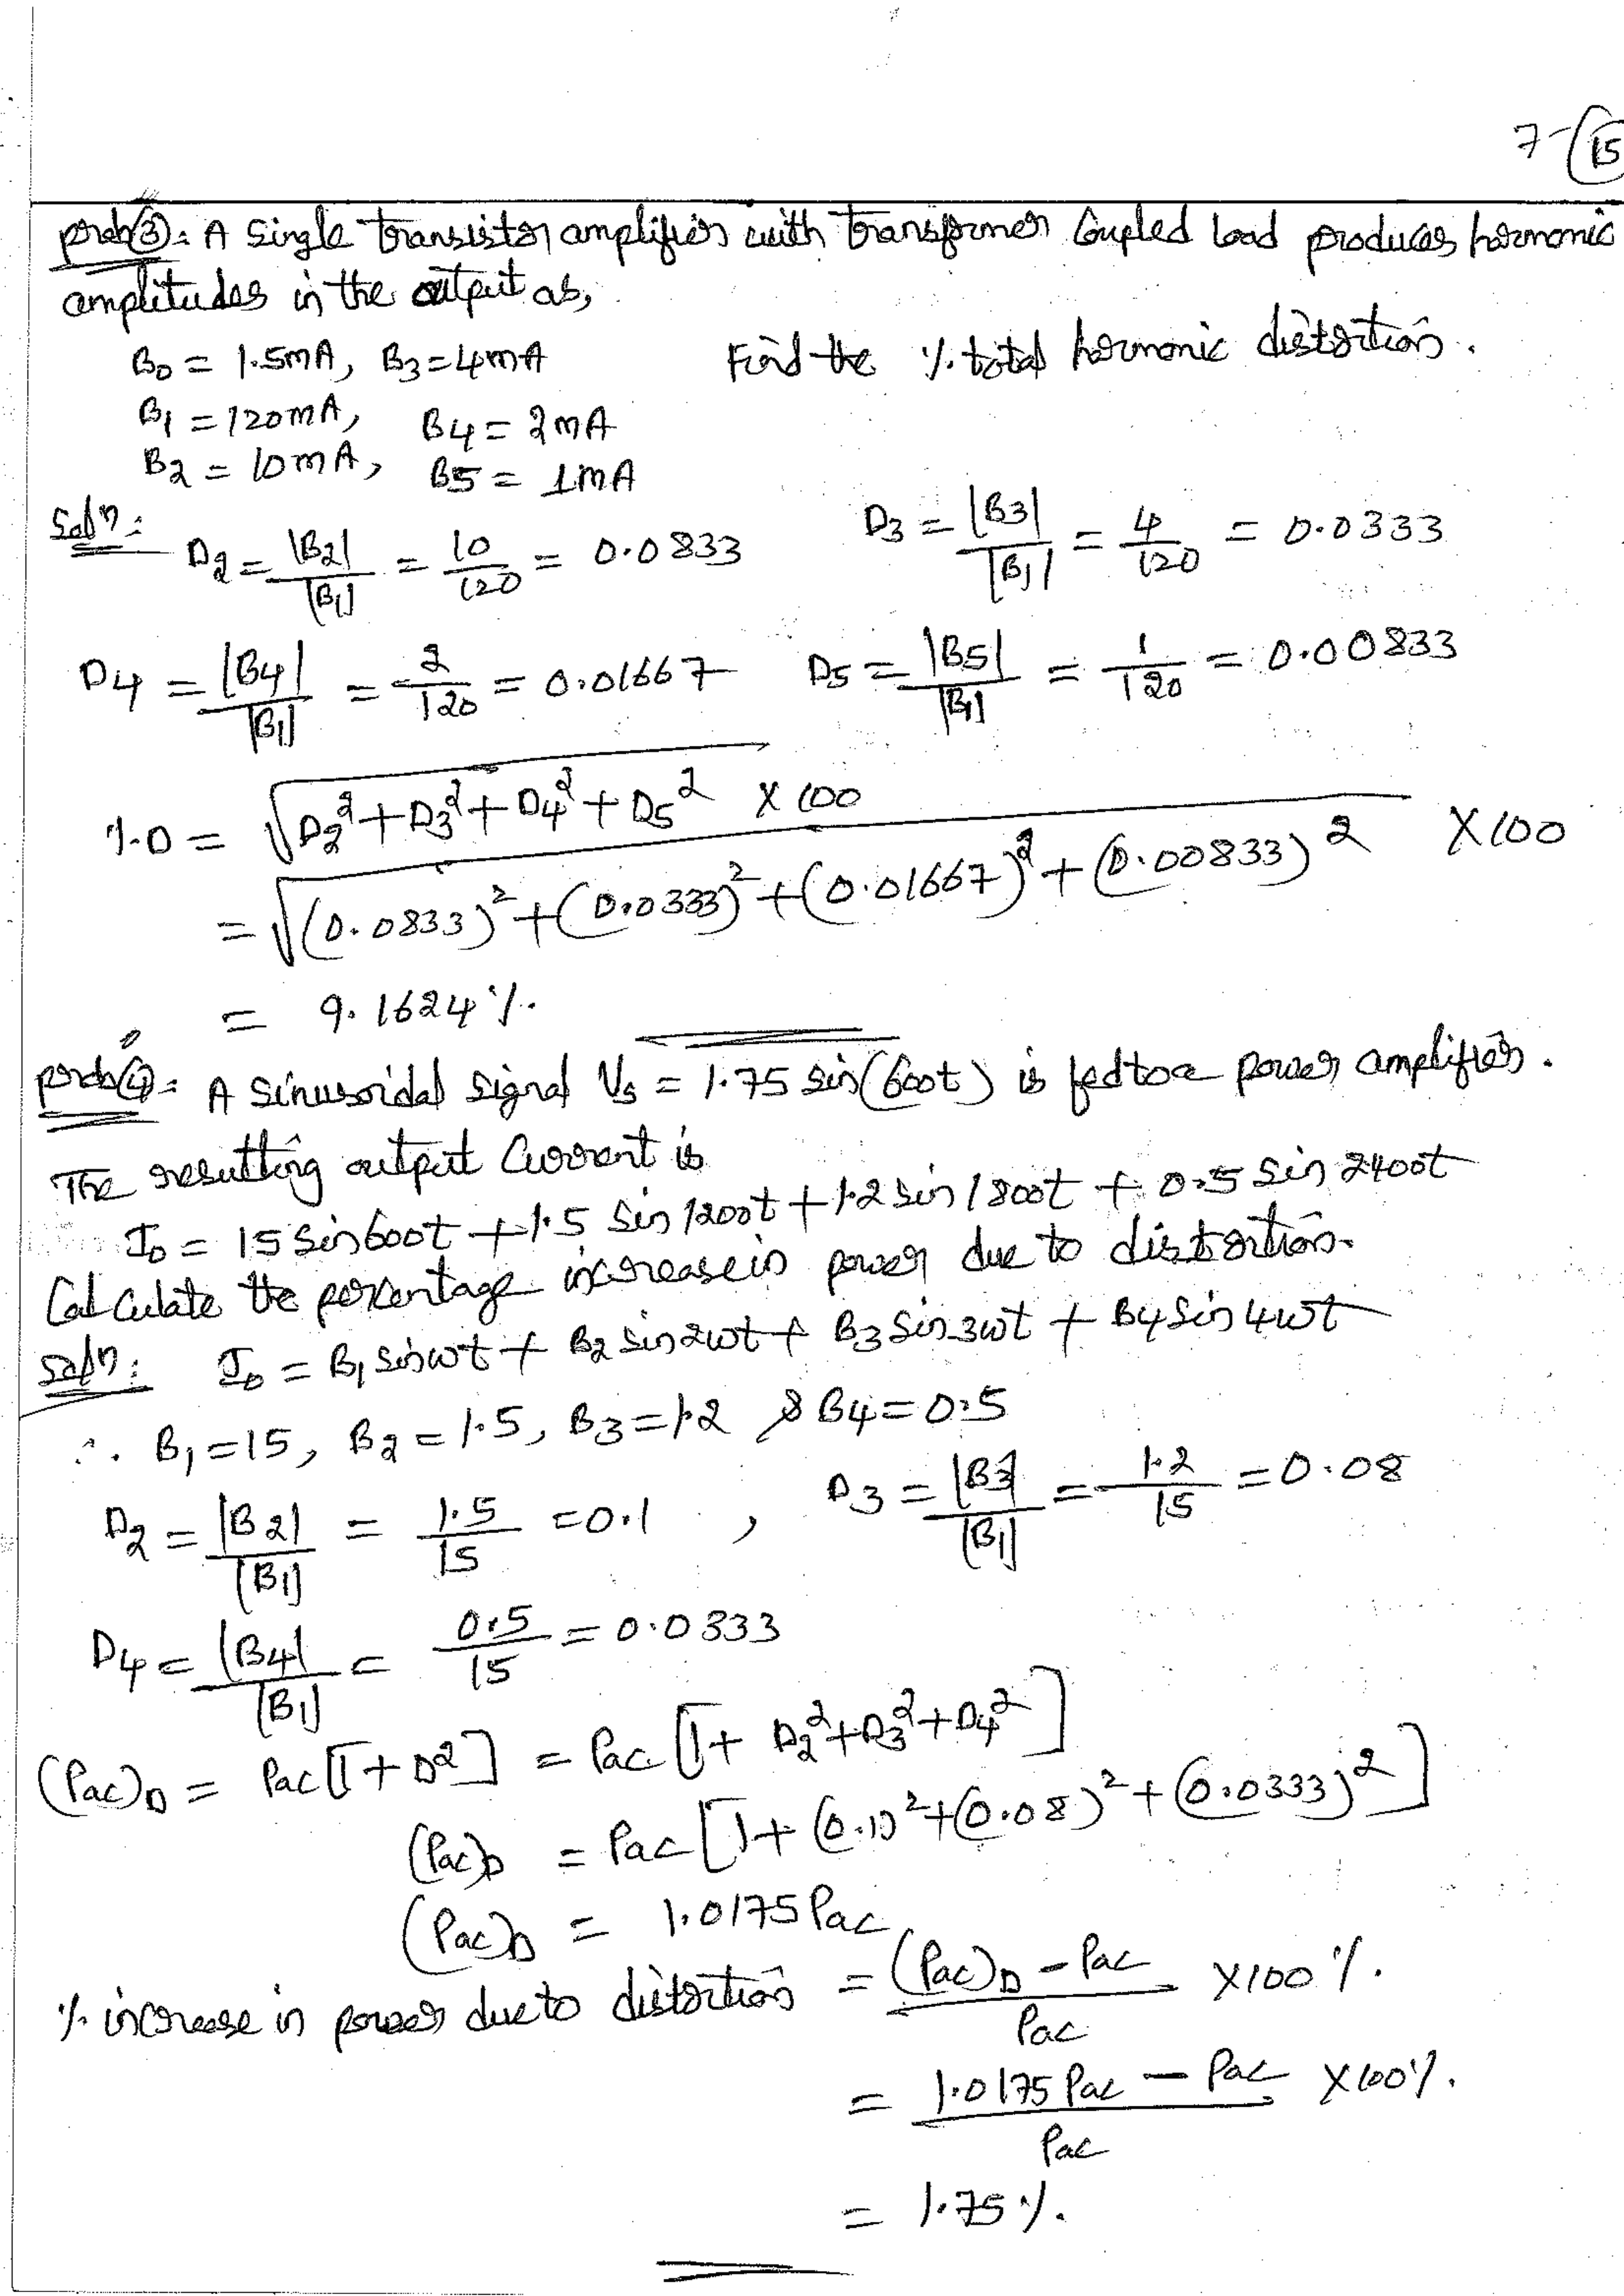 7-(15
prob(3): A Single transistor amplifier with transformer Coupled load produces harmonic
amplitudes in the output as,
B0 = 1.5mA, B3 = 4mA Find the % total harmonic distortion.
B1 = 120mA, B4 = 2mA
B2 = 10mA, B5 = 1mA
Soln: D2 = |B2|/|B1| = 10/120 = 0.0833 D3 = |B3|/|B1| = 4/120 = 0.0333
D4 = |B4|/|B1| = 2/120 = 0.01667 D5 = |B5|/|B1| = 1/120 = 0.00833
% D = √(D2² + D3² + D4² + D5²) × 100
= √((0.0833)² + (0.0333)² + (0.01667)² + (0.00833)²) × 100
= 9.1624 %.
prob(4): A Sinusoidal signal Vs = 1.75 sin(600t) is fed to a power amplifier.
The resulting output Current is
Io = 15 Sin 600t + 1.5 Sin 1200t + 1.2 sin 1800t + 0.5 Sin 2400t
Calculate the percentage increase in power due to distortion.
Soln: Io = B1 sin ωt + B2 sin 2ωt + B3 Sin 3ωt + B4 Sin 4ωt
∴ B1 = 15, B2 = 1.5, B3 = 1.2 & B4 = 0.5
D2 = |B2|/|B1| = 1.5/15 = 0.1 , D3 = |B3|/|B1| = 1.2/15 = 0.08
D4 = |B4|/|B1| = 0.5/15 = 0.0333
(Pac)D = Pac [1 + D²] = Pac [1 + D2² + D3² + D4²]
(Pac)D = Pac [1 + (0.1)² + (0.08)² + (0.0333)²]
(Pac)D = 1.0175 Pac
% increase in power due to distortion = (Pac)D - Pac / Pac × 100 %.
= 1.0175 Pac - Pac / Pac × 100 %.
= 1.75 %.